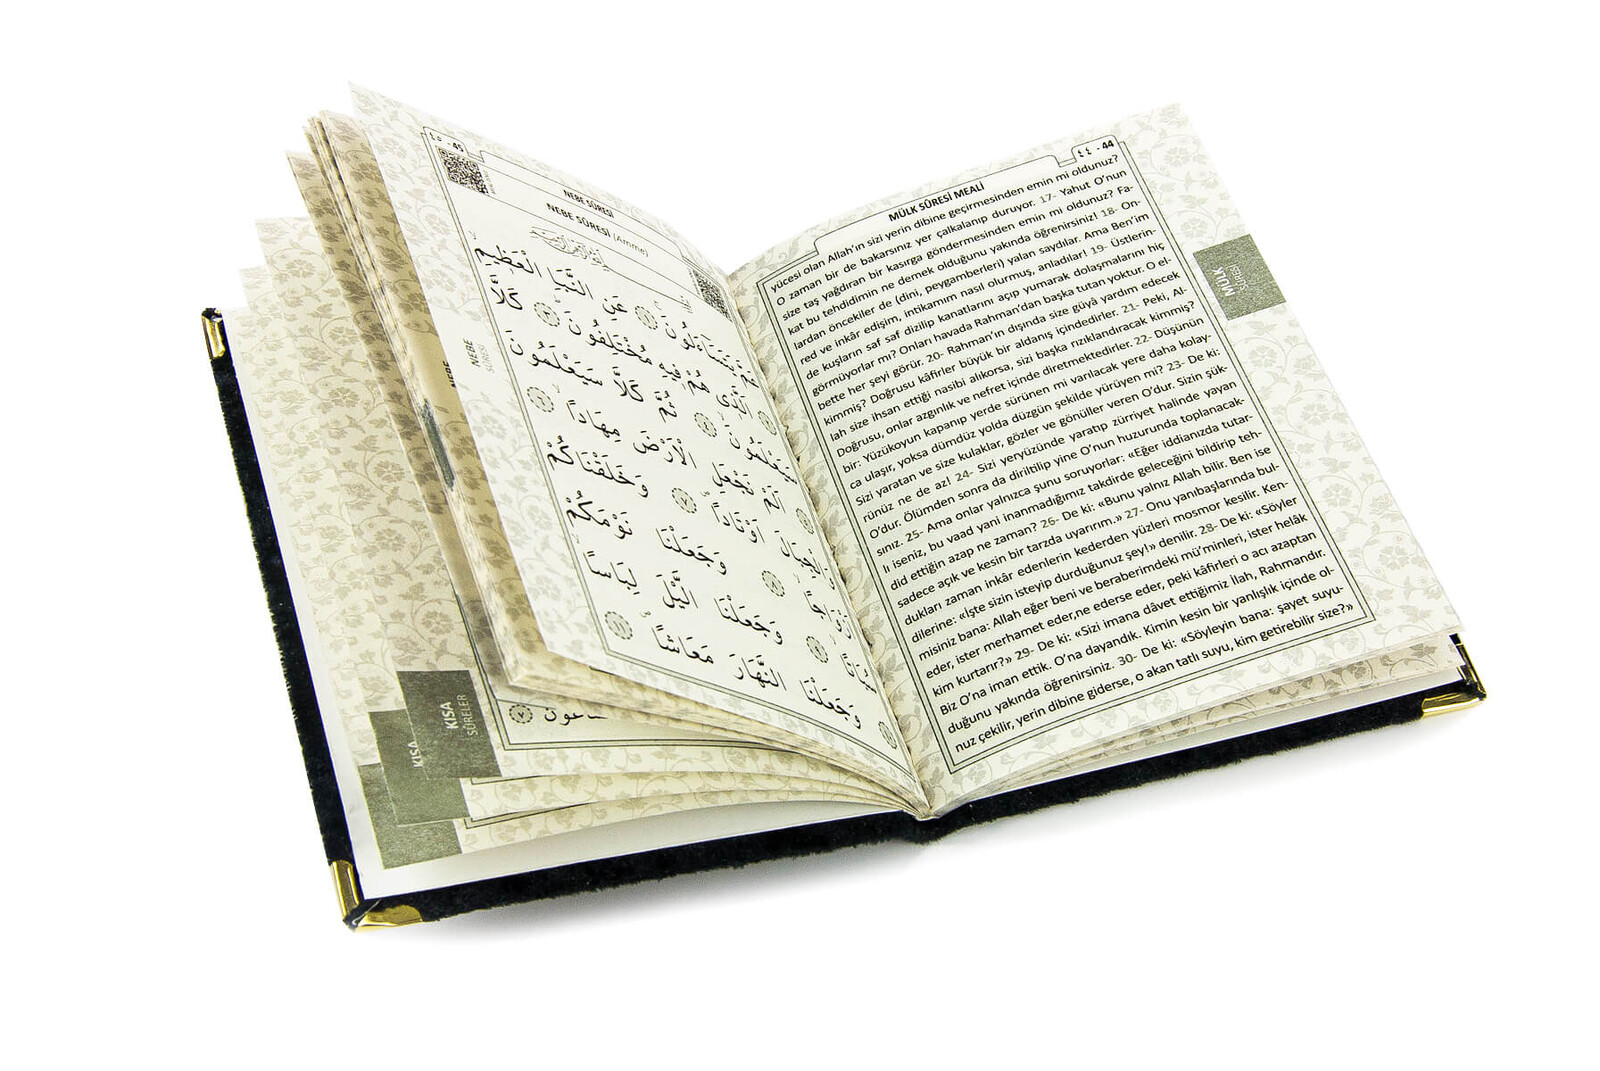 ٤٤ - 44
MÜLK SÛRESİ MEALİ
yücesi olan Allah'ın sizi yerin dibine geçirmesinden emin mi oldunuz?
O zaman bir de bakarsınız yer çalkalanıp duruyor. 17- Yahut O'nun
size taş yağdıran bir kasırga göndermesinden emin mi oldunuz? Fa-
kat bu tehdidimin ne demek olduğunu yakında öğrenirsiniz! 18- On-
lardan öncekiler de (dini, peygamberleri) yalan saydılar. Ama Ben'im
red ve inkâr edişim, intikamım nasıl olurmuş, anladılar! 19- Üstlerin-
de kuşların saf saf dizilip kanatlarını açıp yumarak dolaşmalarını hiç
görmüyorlar mı? Onları havada Rahman'dan başka tutan yoktur. O el-
bette her şeyi görür. 20- Rahman'ın dışında size gûyâ yardım edecek
kimmiş? Doğrusu kâfirler büyük bir aldanış içindedirler. 21- Peki, Al-
lah size ihsan ettiği nasibi alıkorsa, sizi başka rızıklandıracak kimmiş?
Doğrusu, onlar azgınlık ve nefret içinde diretmektedirler. 22- Düşünün
bir: Yüzükoyun kapanıp yerde sürünen mi varılacak yere daha kolay-
ca ulaşır, yoksa dümdüz yolda düzgün şekilde yürüyen mi? 23- De ki:
Sizi yaratan ve size kulaklar, gözler ve gönüller veren O'dur. Sizin şük-
rünüz ne de az! 24- Sizi yeryüzünde yaratıp zürriyet halinde yayan
O'dur. Ölümden sonra da diriltilip yine O'nun huzurunda toplanacak-
sınız. 25- Ama onlar yalnızca şunu soruyorlar: «Eğer iddianızda tutar-
lı iseniz, bu vaad yani inanmadığımız takdirde geleceğini bildirip teh-
did ettiğin azap ne zaman? 26- De ki: «Bunu yalnız Allah bilir. Ben ise
sadece açık ve kesin bir tarzda uyarırım.» 27- Onu yanıbaşlarında bul-
dukları zaman inkâr edenlerin kederden yüzleri mosmor kesilir. Ken-
dilerine: «İşte sizin isteyip durduğunuz şey!» denilir. 28- De ki: «Söyler
misiniz bana: Allah eğer beni ve beraberimdeki mü'minleri, ister helâk
eder, ister merhamet eder,ne ederse eder, peki kâfirleri o acı azaptan
kim kurtarır?» 29- De ki: «Sizi imana dâvet ettiğimiz İlah, Rahmandır.
Biz O'na iman ettik. O'na dayandık. Kimin kesin bir yanlışlık içinde ol-
duğunu yakında öğrenirsiniz. 30- De ki: «Söyleyin bana: şayet suyu-
nuz çekilir, yerin dibine giderse, o akan tatlı suyu, kim getirebilir size?»
MÜLK
SÛRESİ
٤٥ - 45
NEBE SÛRESİ
NEBE SÛRESİ (Amme)
عَمَّ يَتَسَاءَلُونَ ١ عَنِ النَّبَإِ الْعَظِيمِ
٢ الَّذِي هُمْ فِيهِ مُخْتَلِفُونَ ٣ كَلَّا
سَيَعْلَمُونَ ٤ ثُمَّ كَلَّا سَيَعْلَمُونَ
٥ أَلَمْ نَجْعَلِ الْأَرْضَ مِهَادًا ٦
وَالْجِبَالَ أَوْتَادًا ٧ وَخَلَقْنَاكُمْ
أَزْوَاجًا ٨ وَجَعَلْنَا نَوْمَكُمْ
سُبَاتًا ٩ وَجَعَلْنَا الَّيْلَ لِبَاسًا
١٠ وَجَعَلْنَا النَّهَارَ مَعَاشًا
NEBE
SÛRESİ
NEBE
KISA
SÛRELER
KISA